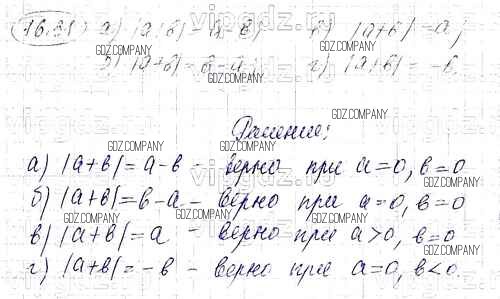 16.31 а) |a+b| = a-b; в) |a+b| = a;
б) |a+b| = b-a; г) |a+b| = -b.
Решение:
а) |a+b| = a-b - верно при a=0, b=0
б) |a+b| = b-a - верно при a=0, b=0
в) |a+b| = a - верно при a>0, b=0
г) |a+b| = -b - верно при a=0, b<0.
GDZ.COMPANY
vipgdz.ru